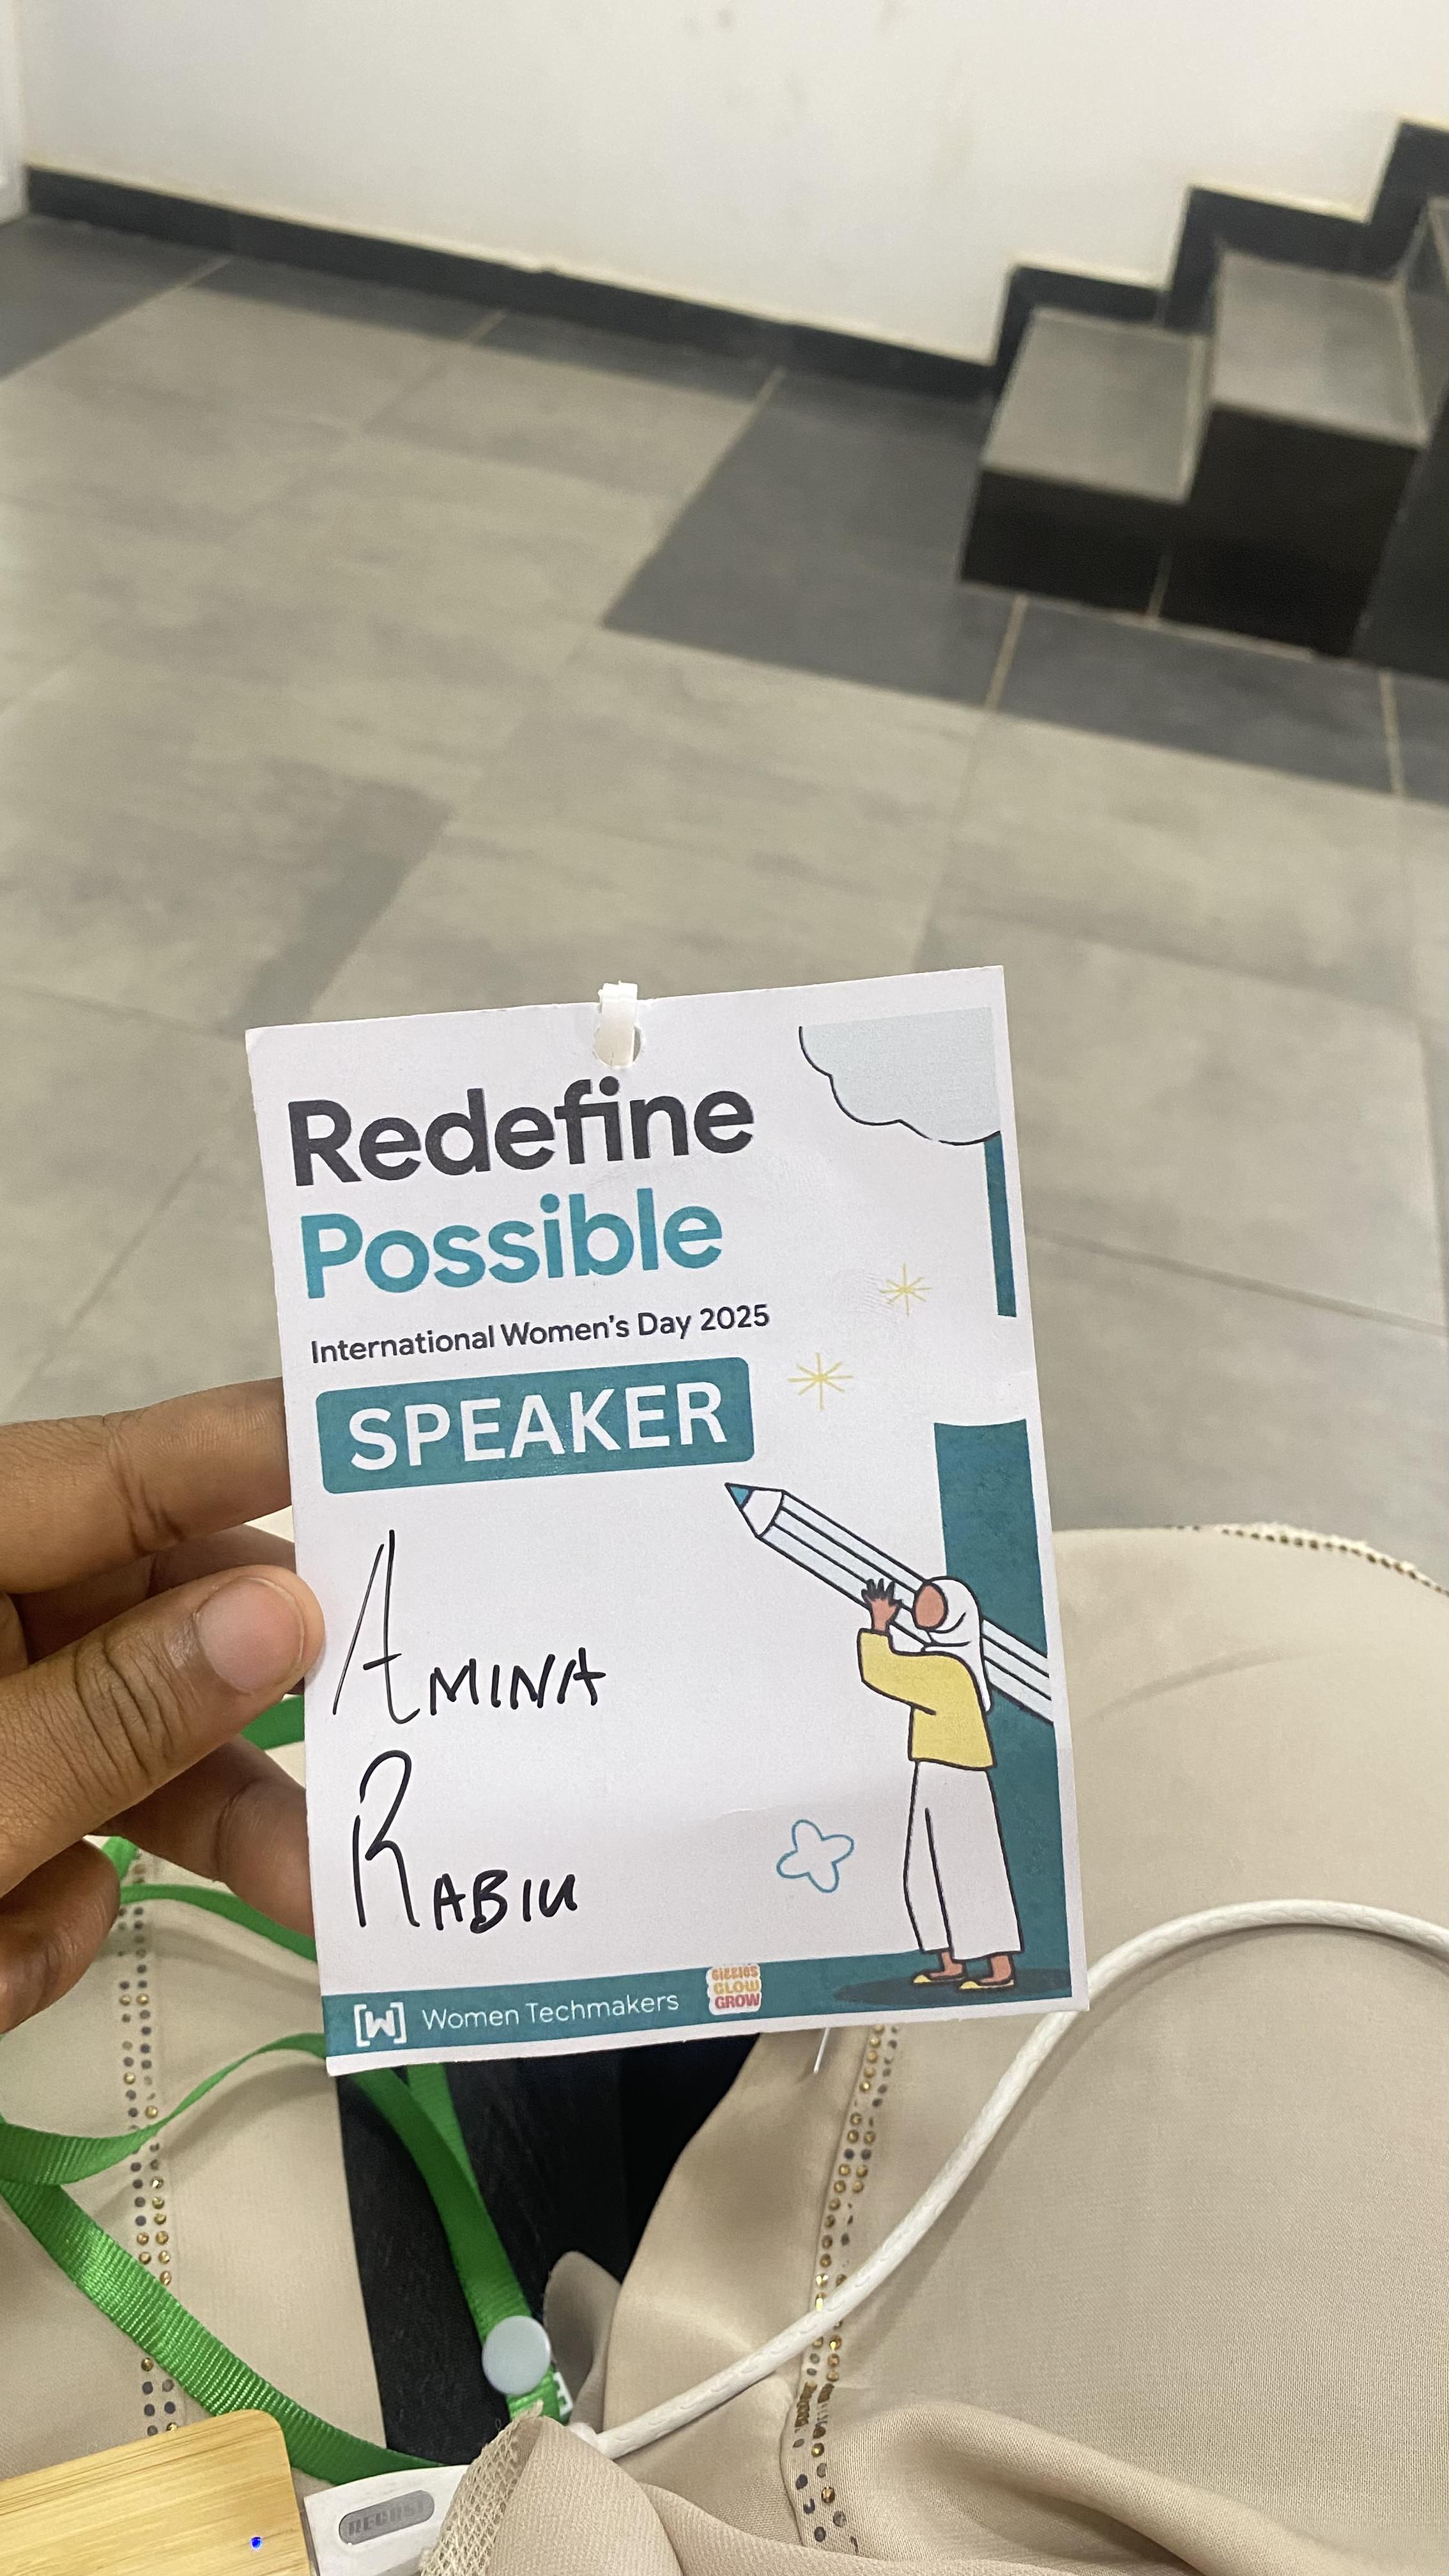 Redefine
Possible
International Women's Day 2025
SPEAKER
AMINA
RABIU
[W] Women Techmakers
GLOW
GROW